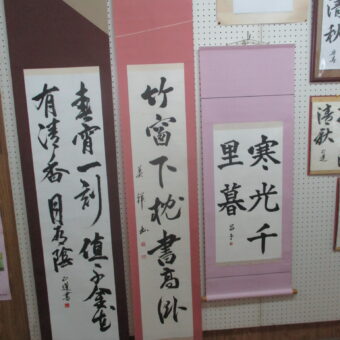 清秋
清秋
寒光千
里暮
竹窗下枕書高臥
春宵一刻値千金花
有清香月有陰